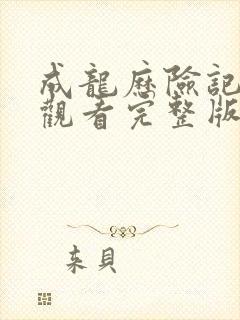 成龍歷險記
觀看完整版
來貝